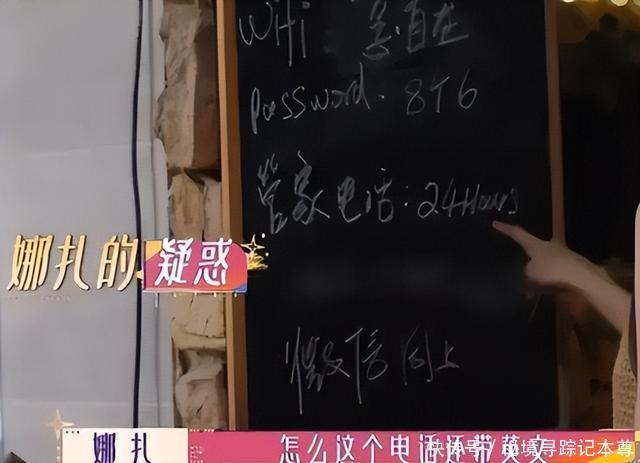 WiFi 易·自在
Password. 8T6
管家电话：24Hours
娜扎的疑惑
微信同上
娜扎
怎么这个电话还带英文
快传号/秘境寻踪记本尊